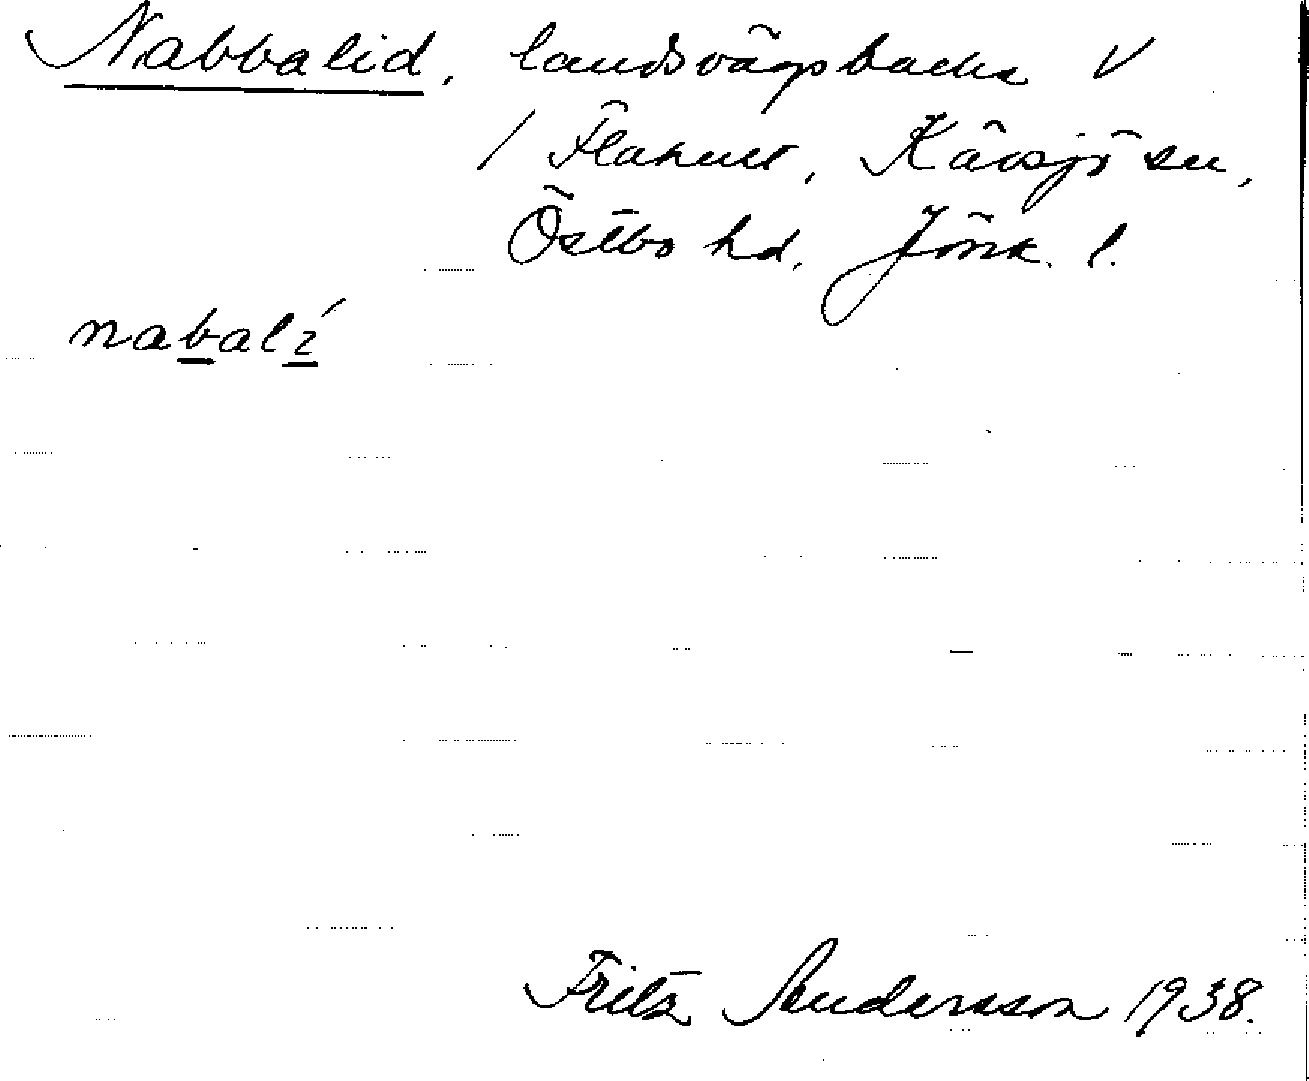 Nabbalid, landsvägsbacke V
/ Flahult, Kävsjö sn,
Östbo hd, Jönk. l.
nabalí
Fritz Andersson 1938.